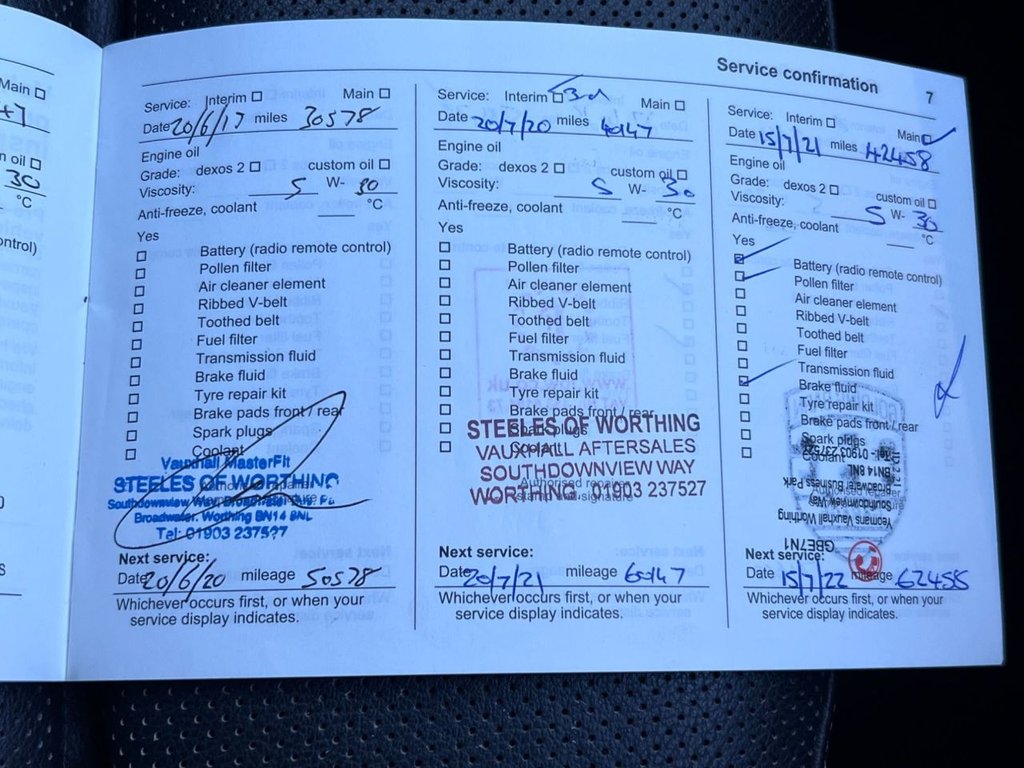 Main
30
°C
Service confirmation 7
Service: Interim Main
Date 20/6/17 miles 30578
Engine oil
Grade: dexos 2 custom oil
Viscosity: 5 W- 30
Anti-freeze, coolant °C
Yes
Battery (radio remote control)
Pollen filter
Air cleaner element
Ribbed V-belt
Toothed belt
Fuel filter
Transmission fluid
Brake fluid
Tyre repair kit
Brake pads front / rear
Spark plugs
Coolant
Vauxhall MasterFit
STEELES OF WORTHING
Southdownview Way,
Broadwater, Worthing BN14 8NL
Tel: 01903 237527
Next service:
Date 20/6/20 mileage 50578
Whichever occurs first, or when your
service display indicates.
Service: Interim 3rd Main
Date 20/7/20 miles 40147
Engine oil
Grade: dexos 2 custom oil
Viscosity: 5 W- 30
Anti-freeze, coolant °C
Yes
Battery (radio remote control)
Pollen filter
Air cleaner element
Ribbed V-belt
Toothed belt
Fuel filter
Transmission fluid
Brake fluid
Tyre repair kit
Brake pads front / rear
Spark plugs
Coolant
STEELES OF WORTHING
VAUXHALL AFTERSALES
SOUTHDOWNVIEW WAY
Authorised repairer
WORTHING 01903 237527
Next service:
Date 20/7/21 mileage 60147
Whichever occurs first, or when your
service display indicates.
Service: Interim Main
Date 15/7/21 miles 42458
Engine oil
Grade: dexos 2 custom oil
Viscosity: 5 W- 30
Anti-freeze, coolant °C
Yes
Battery (radio remote control)
Pollen filter
Air cleaner element
Ribbed V-belt
Toothed belt
Fuel filter
Transmission fluid
Brake fluid
Tyre repair kit
Brake pads front / rear
Spark plugs
Coolant
Tel:- 01903 237527
BN14 8NL
Broadwater Business Park
Southdownview Way
Yeomans Vauxhall Worthing
GBE7N1
Next service:
Date 15/7/22 mileage 62458
Whichever occurs first, or when your
service display indicates.